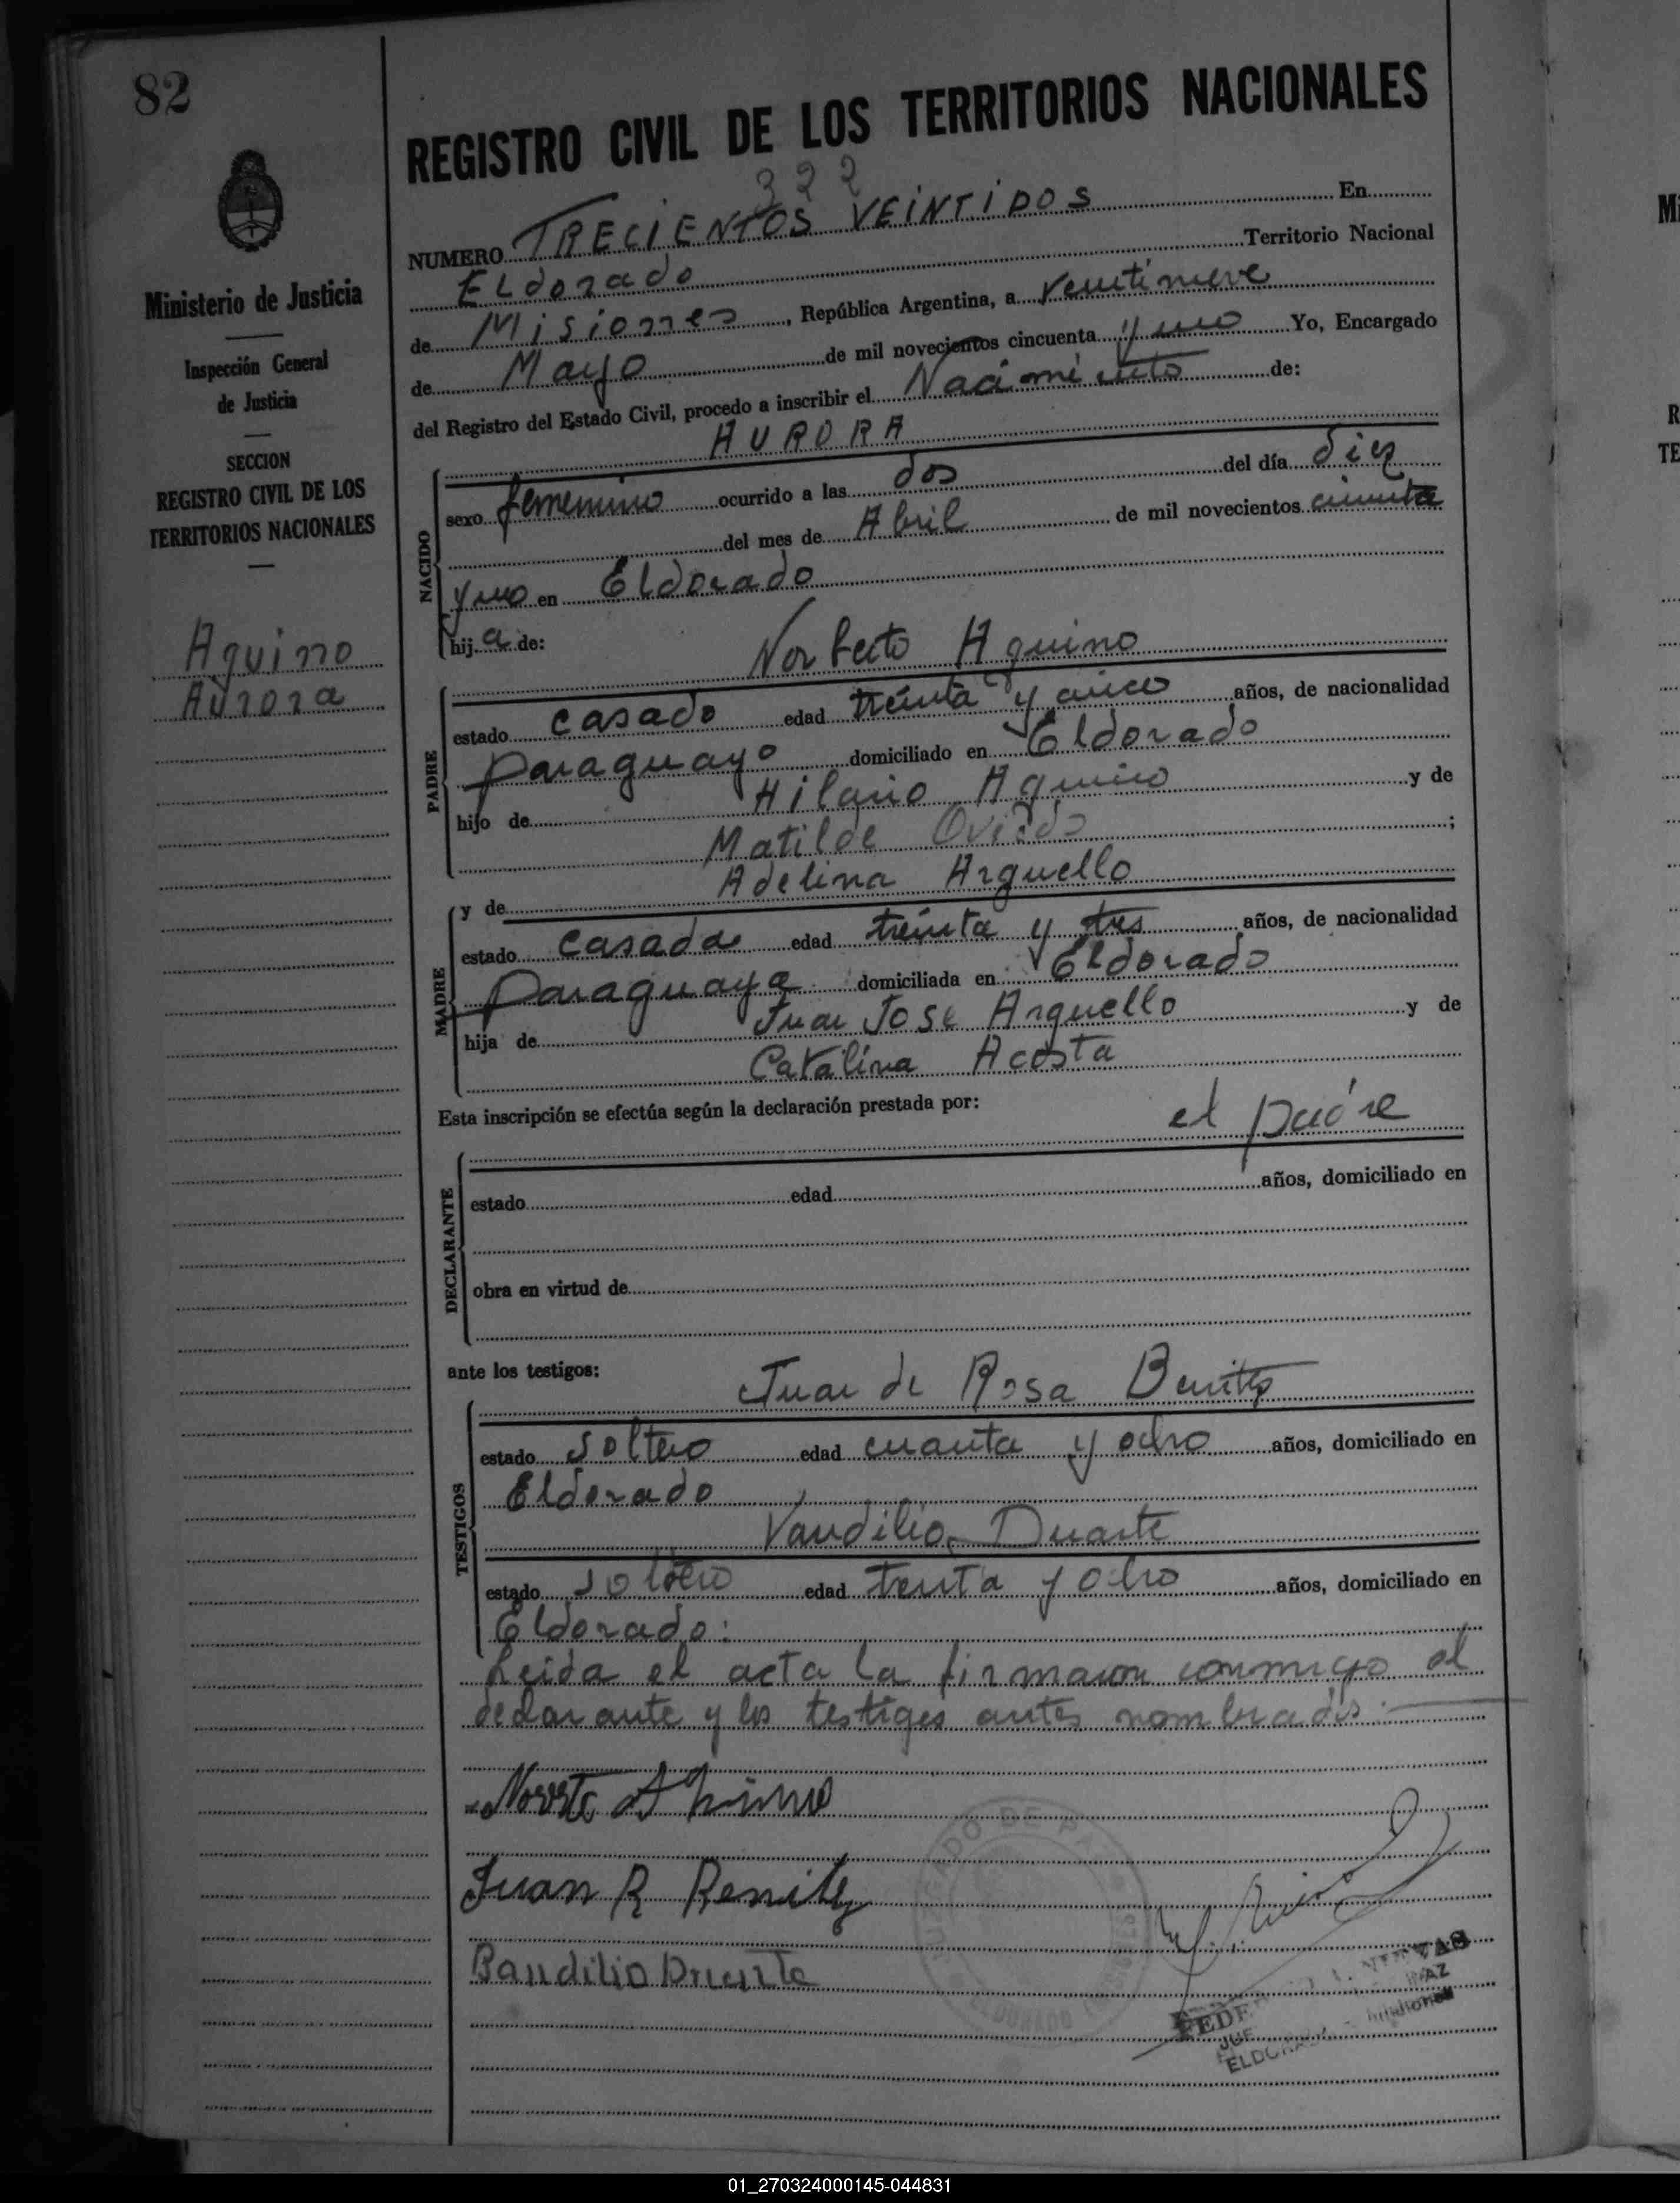 82
REGISTRO CIVIL DE LOS TERRITORIOS NACIONALES
Ministerio de Justicia
Inspección General
de Justicia
SECCION
REGISTRO CIVIL DE LOS
TERRITORIOS NACIONALES
Aquino
Aurora
322
NUMERO TRECIENTOS VEINTIDOS En
ELdorado Territorio Nacional
de Misiones, República Argentina, a veintinueve
de Mayo de mil novecientos cincuenta y uno Yo, Encargado
del Registro del Estado Civil, procedo a inscribir el Nacimiento de:
AURORA
NACIDO
sexo femenino ocurrido a las dos del día diez
del mes de Abril de mil novecientos cincuenta
y uno en Eldorado
hija de:
Norberto Aquino
PADRE
estado casado edad treinta y cinco años, de nacionalidad
paraguayo domiciliado en Eldorado
hijo de Hilario Aquino y de
Matilde Oviedo;
y de Adelina Arguello
MADRE
estado casada edad treinta y tres años, de nacionalidad
paraguaya domiciliada en Eldorado
hija de Juan Jose Arguello y de
Catalina Acosta
Esta inscripción se efectúa según la declaración prestada por:
el padre
DECLARANTE
estado edad años, domiciliado en
obra en virtud de
ante los testigos:
Juan de Rosa Benitez
TESTIGOS
estado soltero edad cuarenta y ocho años, domiciliado en
Eldorado
Vaudilio Duarte
estado soltero edad treinta y ocho años, domiciliado en
Eldorado.
Leida el acta la firmaron conmigo el
declarante y los testigos antes nombrados.
Juan R Benitez
Baudilio Duarte
JUZGADO DE PAZ
ELDORADO
01_270324000145-044831